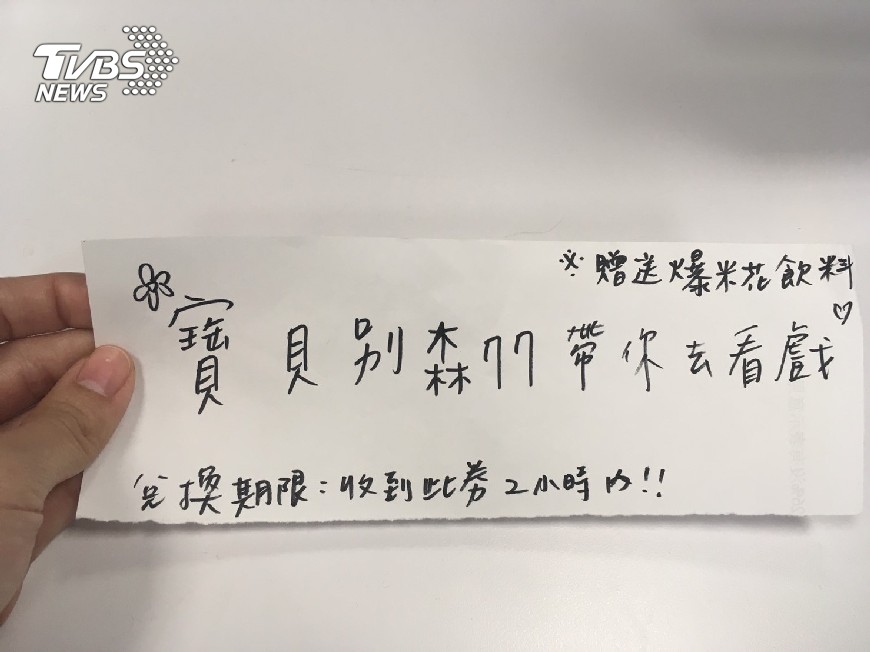 TVBS
NEWS
※贈送爆米花飲料
寶貝別森77帶你去看戲
兌換期限:收到此券2小時內!!